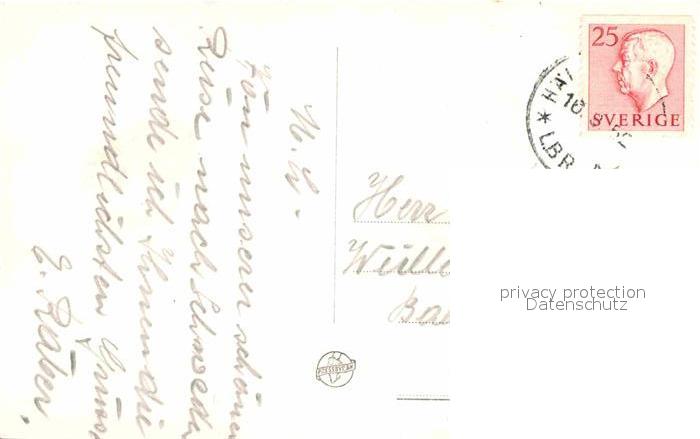 Von unserer schönen
Reise nach Schweden
sende ich Ihnen die
freundlichsten Grüsse
E. Räber.
Herr
25
SVERIGE
LBR
privacy protection
Datenschutz